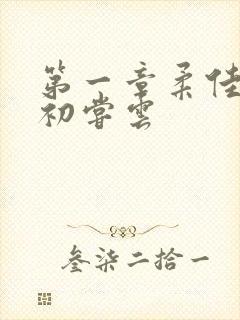 第一章柔佳
初尝云
叄柒二拾一